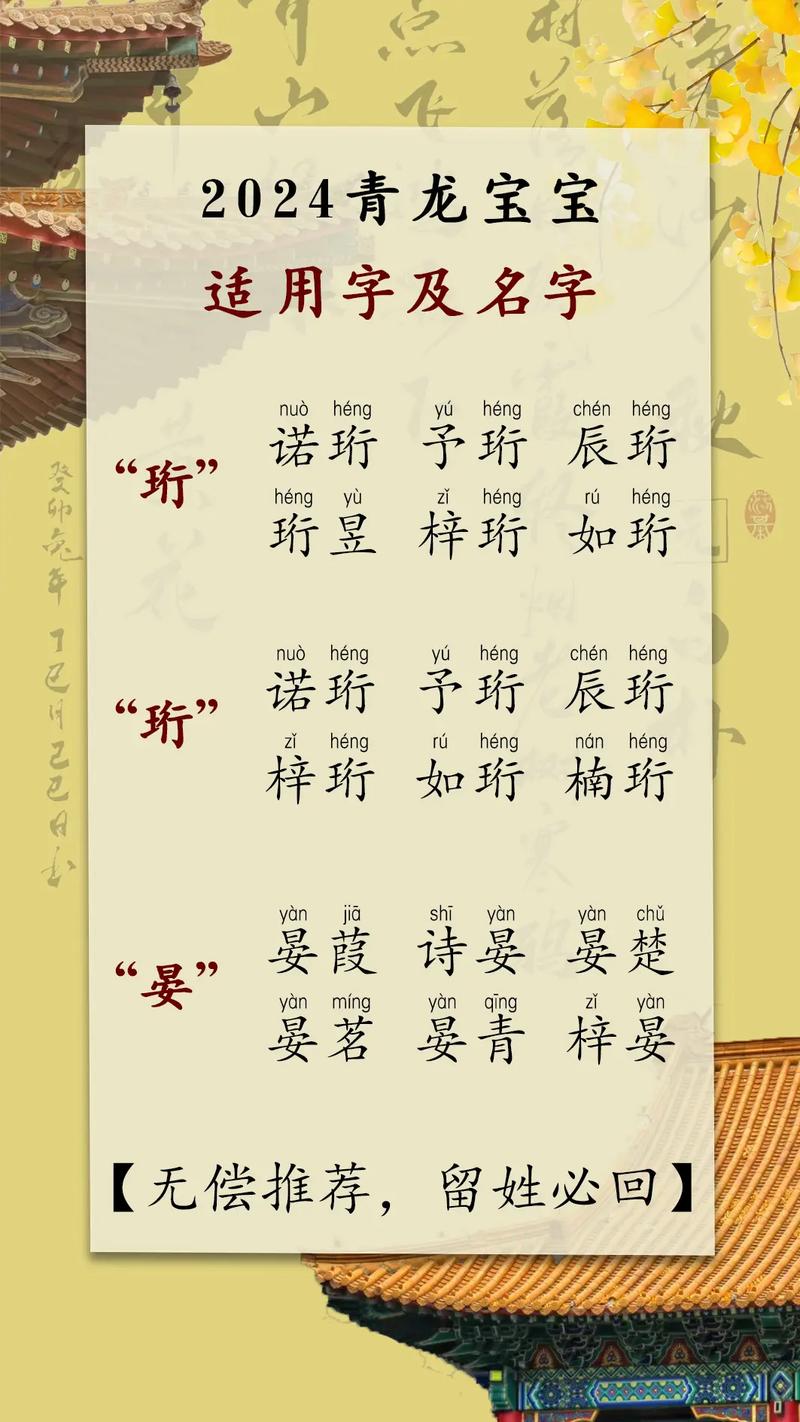 2024青龙宝宝
适用字及名字
“珩”
nuò héng yú héng chén héng
诺珩 予珩 辰珩
héng yù zǐ héng rú héng
珩昱 梓珩 如珩
“珩”
nuò héng yú héng chén héng
诺珩 予珩 辰珩
zǐ héng rú héng nán héng
梓珩 如珩 楠珩
“晏”
yàn jiā shī yàn yàn chǔ
晏葭 诗晏 晏楚
yàn míng yàn qīng zǐ yàn
晏茗 晏青 梓晏
【无偿推荐，留姓必回】
癸卯兔年丁巳月己巳日书